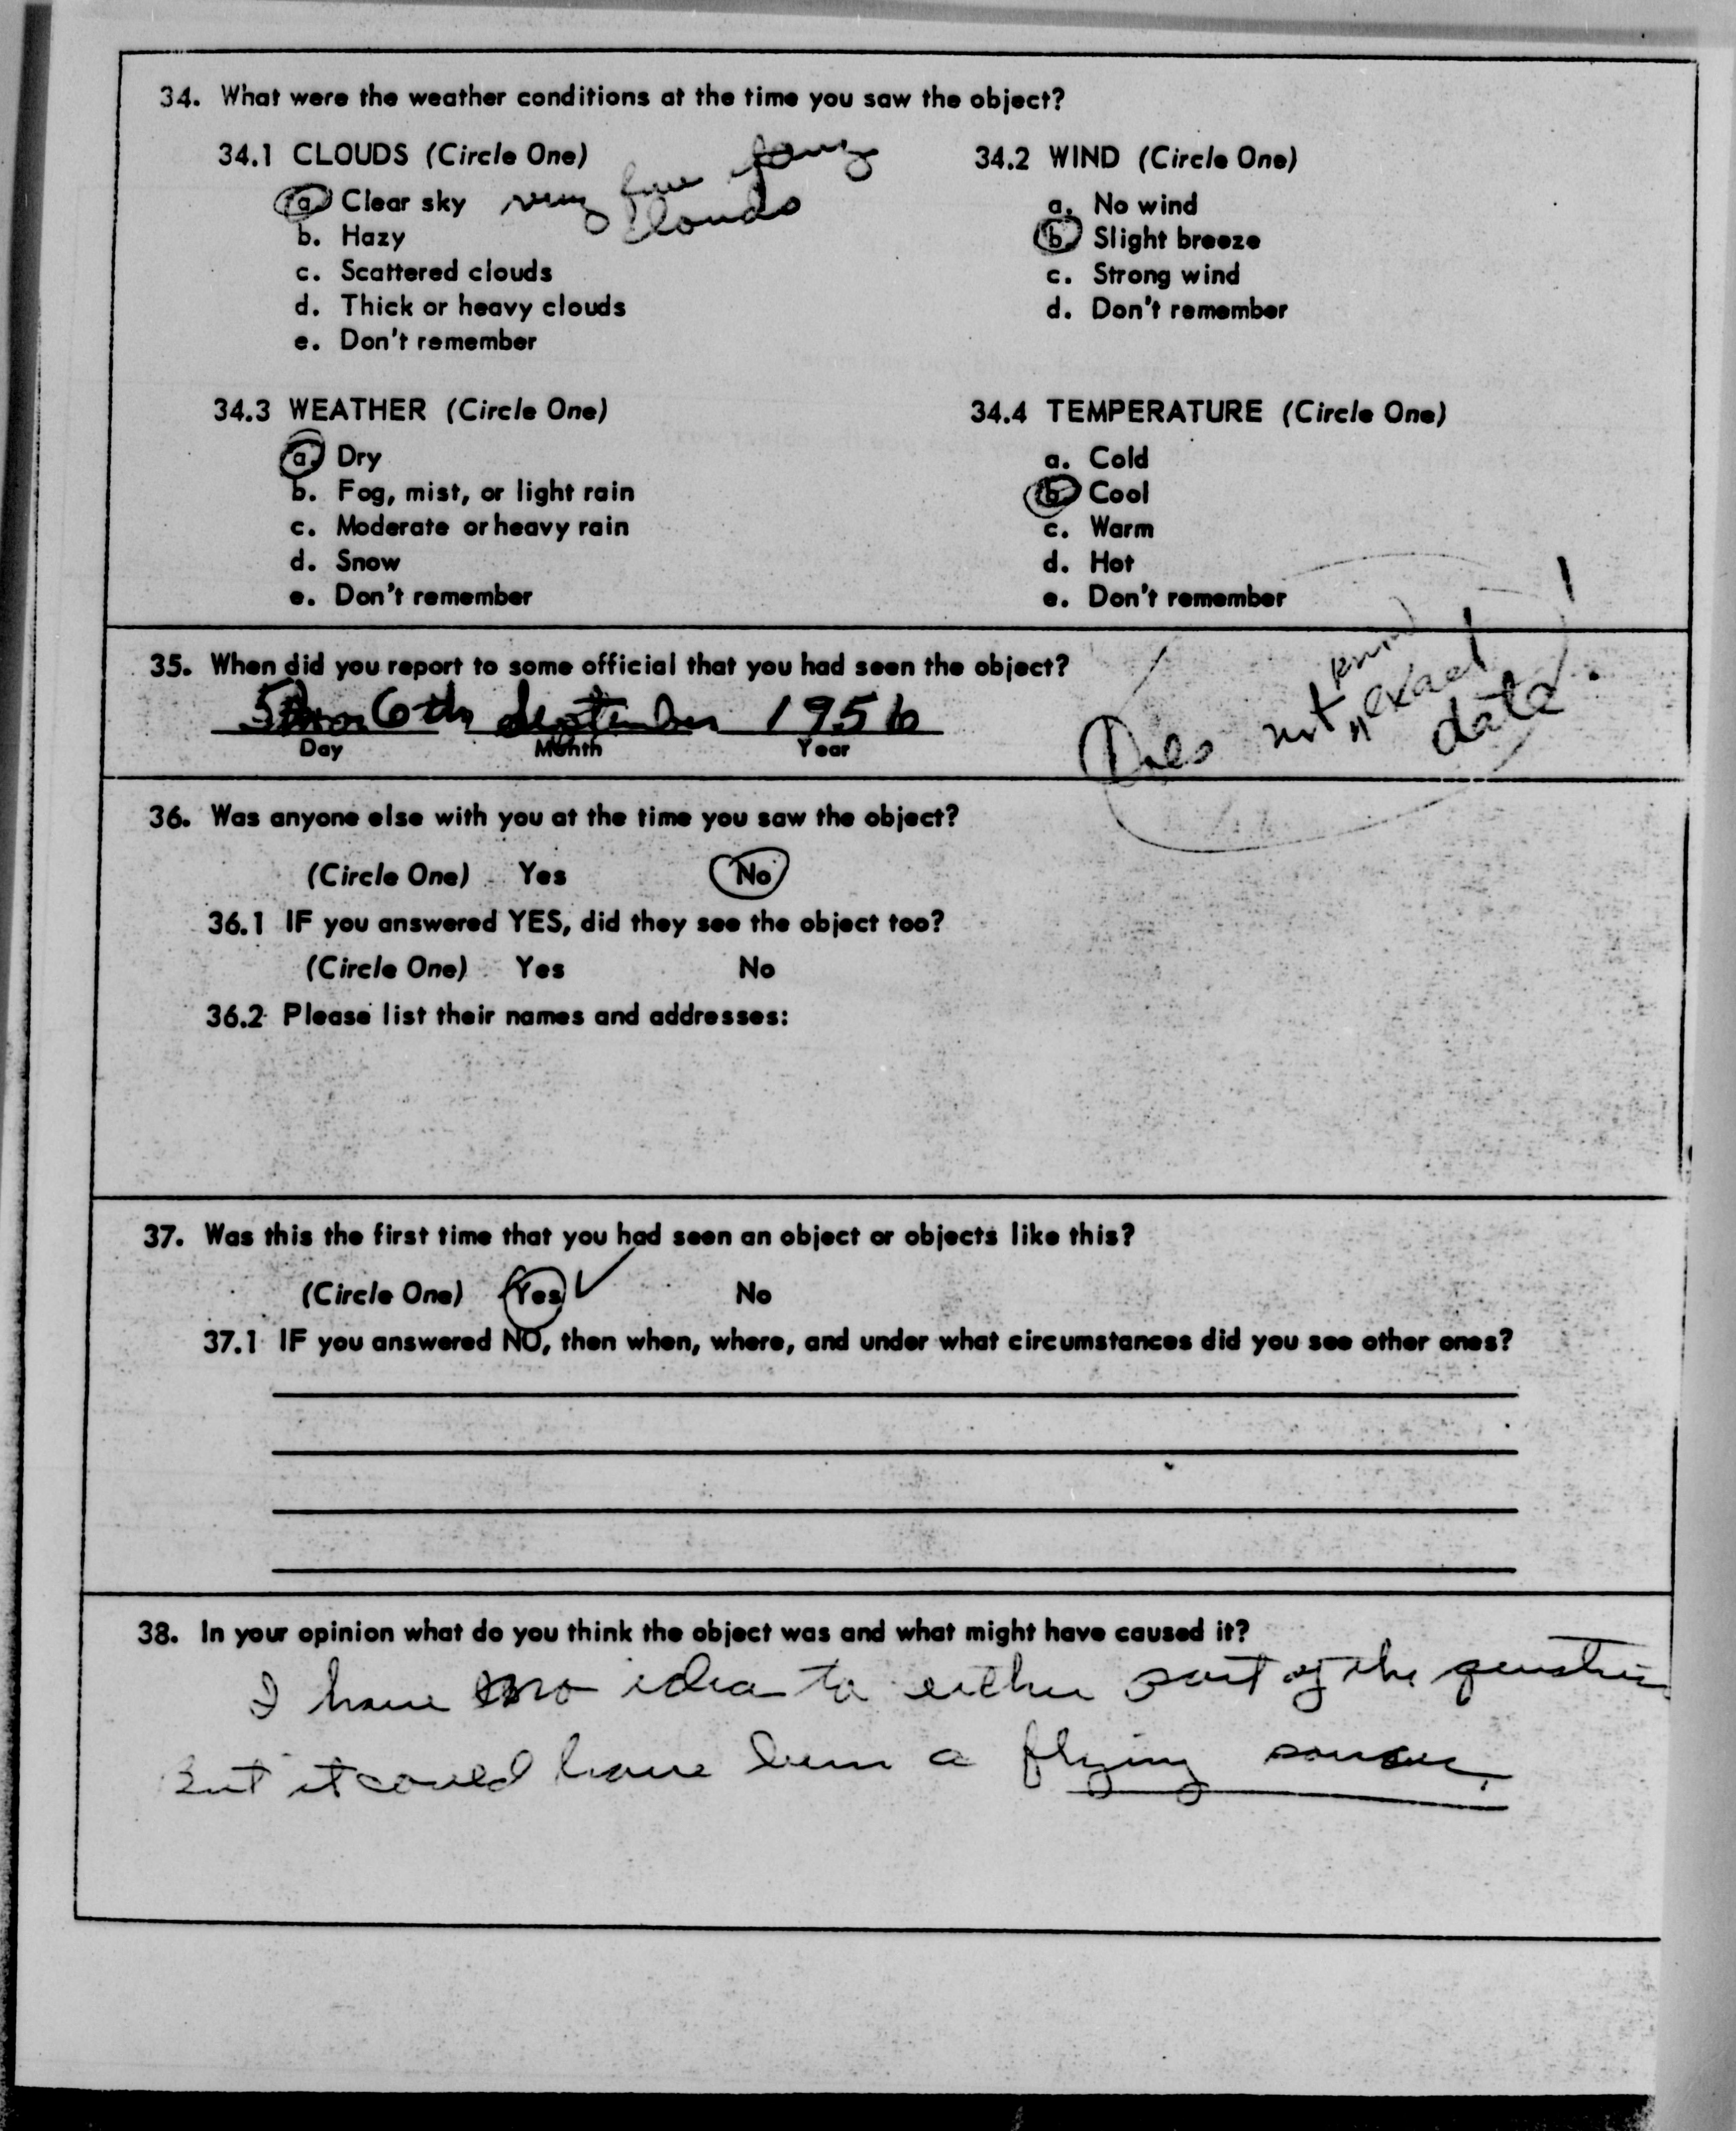 34. What were the weather conditions at the time you saw the object?
34.1 CLOUDS (Circle One)
a. Clear sky very few
clouds
b. Hazy
c. Scattered clouds
d. Thick or heavy clouds
e. Don't remember
34.2 WIND (Circle One)
a. No wind
b. Slight breeze
c. Strong wind
d. Don't remember
34.3 WEATHER (Circle One)
a. Dry
b. Fog, mist, or light rain
c. Moderate or heavy rain
d. Snow
e. Don't remember
34.4 TEMPERATURE (Circle One)
a. Cold
b. Cool
c. Warm
d. Hot
e. Don't remember
35. When did you report to some official that you had seen the object?
6th September 1956
Day Month Year
Does not know exact
date!
36. Was anyone else with you at the time you saw the object?
(Circle One) Yes No
36.1 IF you answered YES, did they see the object too?
(Circle One) Yes No
36.2 Please list their names and addresses:
37. Was this the first time that you had seen an object or objects like this?
(Circle One) Yes No
37.1 IF you answered NO, then when, where, and under what circumstances did you see other ones?
38. In your opinion what do you think the object was and what might have caused it?
I have no idea to either part of the question
But it could have been a flying saucer.